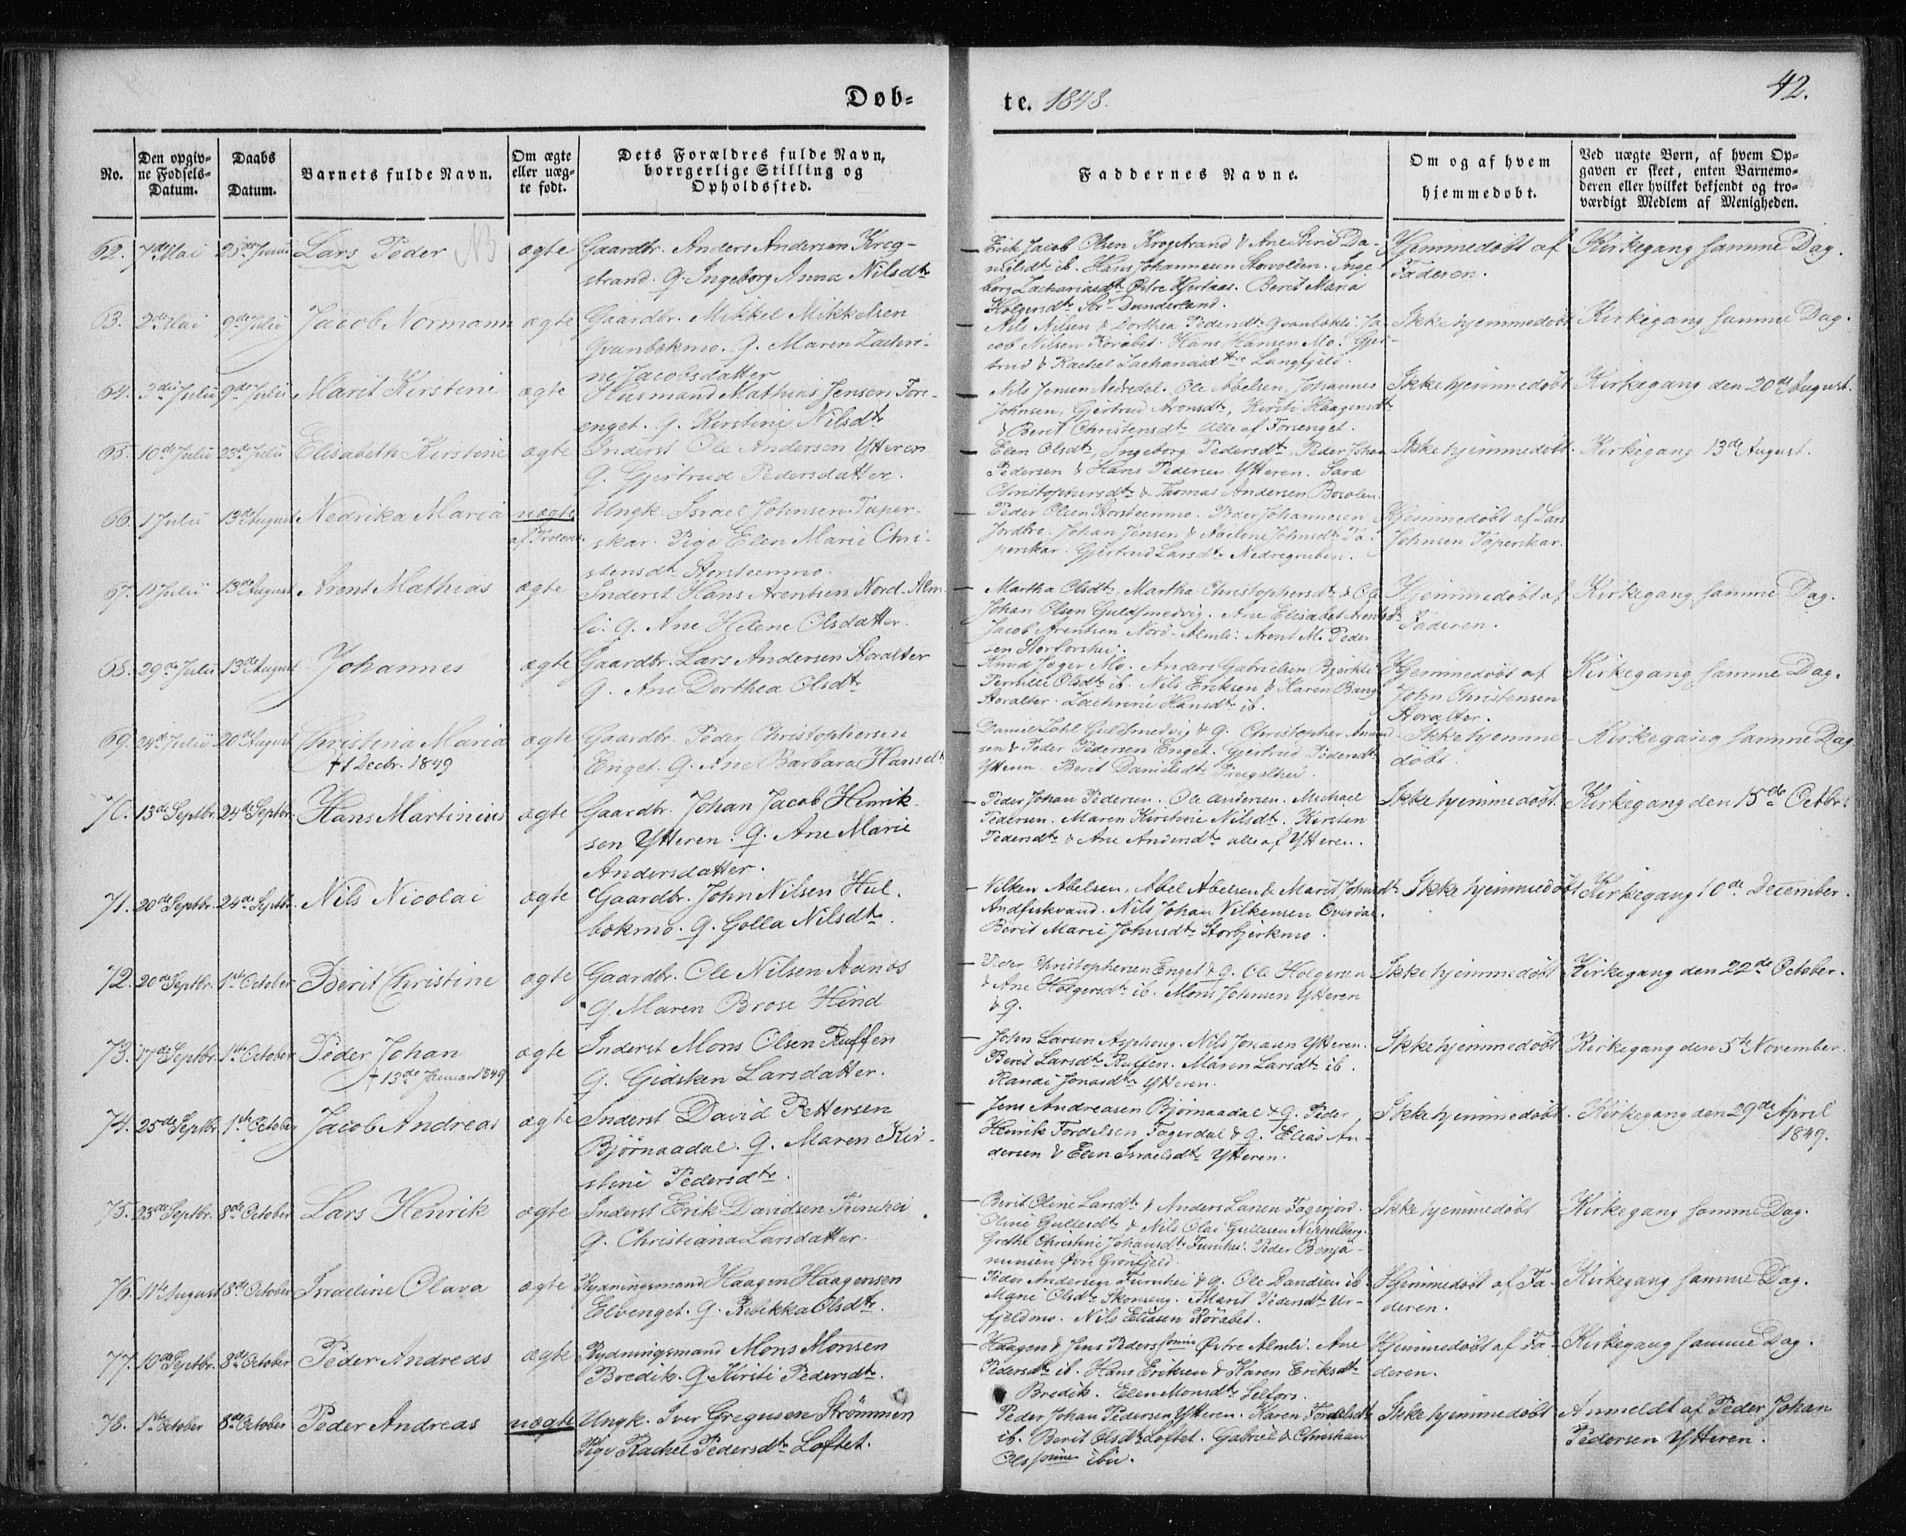 Døb-
te. 1848.
42.
No.
Den opgiv-
ne Fødsels-
Datum.
Daabs
Datum.
Barnets fulde Navn.
Om ægte
eller uæg-
te født.
Dets Forældres fulde Navn,
borrgerlige Stilling og
Opholdssted.
Faddernes Navne.
Om og af hvem
hjemmedøbt.
Ved uægte Børn, af hvem Op-
gaven er skeet, enten Barnemo-
deren eller hvilket bekjendt og tro-
værdigt Medlem af Menigheden.
62. 7de Mai 25de Juni Lars Peder NB ægte
Gaardbr. Anders Andersen Krog-
strand. Q. Ingeborg Anna Nilsdtr
Erik Jacob Olsen Krogstrand & Ane Da-
nielsdtr ib. Hans Johannesen Storvolden. Inge-
borg Zachariasdtr Østre Hjertaas. Berit Maria
Holgersdtr Dunderland.
Hjemmedøbt af
Faderen.
Kirkegang samme Dag.
63. 2de Mai 9de Julii Jacob Normann ægte
Gaardbr. Mikkel Mikkelsen
Qvanbekmo. Q. Maren Zachri-
ne Jacobsdatter
Nils Nilsen & Dorthea Pedersdtr Ja-
cob Nilsen Hans Hansen Mo. Gjer-
trud & Rachel Langfjeld.
Ikke hjemmedøbt
Kirkegang samme Dag.
64. 3die Julii 9de Julii Marit Kirstine ægte
Husmand Mathias Jensen Fors-
enget. Q. Kirstine Nilsdtr
Nils Jensen Nedredal. Ole Abelsen, Johannes
Johnsen, Gjertrud Aronsdtr, Kirsti Haagensdtr
& Berit Christensdtr alle af Forsenget.
Ikke hjemmedøbt
Kirkegang den 20de August.
65. 10de Julii 23de Julii Elisabeth Kirstine ægte
Inderst Ole Andersen Ytteren
Q. Gjertrud Pedersdatter.
Elen Olsdtr, Ingeborg Pedersdtr. Peder Johan
Pedersen & Hans Pedersen Ytteren. Sara
Christophersdtr & Thomas Andersen
Ikke hjemmedøbt.
Kirkegang 13de August.
66. 1 Julii 13de August Nedrika Maria uægte
Ungk. Israel Johnsen Taper-
skar. Pige Elen Marie Chri-
stensdtr Storsteenmo.
Peder Olsen Storsteenmo. Peder Johannesen
Jordbro. Johan Jensen & Abelone Johnsdtr Ta-
perskar. Gjertrud Larsdtr Nedregruben.
Hjemmedøbt af Lars
Johnsen Taperskar.
67. 11 Julii 13de August Arent Mathias ægte
Inderst Hans Arentsen Nord-Alm-
li. Q. Ane Helene Olsdatter.
Martha Olsdtr. Martha Christophersdtr & Ole
Johan Olsen Guldsmedvig. Ane Elisabet Arentsdtr
Jacob Arentsen Nord-Almli. Arent M. Peder-
sen Storforshei.
Hjemmedøbt af
Faderen.
Kirkegang samme Dag.
68. 29de Julii 13de August Johannes ægte
Gaardbr. Lars Andersen Storalter
Q. Ane Dorthea Olsdtr
Knud Jæger Mo. Anders Gabrielsen Bjerkli
Pernille Olsdtr ib. Nils Eriksen & Karen Bang
Storalter. Zachrine Hansdtr ib.
Hjemmedøbt af
John Christensen
Storalter.
Kirkegang samme Dag.
69. 24de Julii 20de August Christina Maria
† 1 Decbr. 1849
ægte
Gaardbr. Peder Christophersen
Enget. Q. Ane Barbara Hansdtr
Daniel Guldsmedvig & Q. Christopher
sen & Peder Pedersen Enget. Gjertrud Pedersdtr
Ytteren. Berit Danielsdtr
Ikke hjemme-
døbt.
Kirkegang samme Dag
70. 13de Septbr. 24de Septbr. Hans Martinius ægte
Gaardbr. Johan Jacob Henrik-
sen Ytteren. Q. Ane Marie
Andersdatter.
Peder Johan Pedersen. Ole Andersen. Michael
Pedersen. Maren Kirstine Nilsdtr. Kirsten
Pedersdtr & Ane Andersdtr alle af Ytteren.
Ikke hjemmedøbt.
Kirkegang den 15de Octbr.
71. 20de Septbr. 24de Septbr. Nils Nicolai ægte
Gaardbr. John Nilsen Hul-
bekmo. Q. Golla Nilsdtr.
Vilken Abelsen, Abel Abelsen & Marit Johnsdtr
Andfiskvand. Nils Johan Vilkensen Overdal.
Berit Marie Johnsdtr Storbjerkmo.
Ikke hjemmedøbt
Kirkegang 10de December.
72. 20de Septbr. 1ste October Berit Christine ægte
Gaardbr. Ole Nilsen Aanæs
Q. Maren Brose Hind
Peder Christophersen Enget & Q. Ole Holgersen
& Ane Holgersdtr ib. Mons Johnsen Ytteren
& Q.
Ikke hjemmedøbt
Kirkegang den 22de October.
73. 17de Septbr. 1ste October Peder Johan
† 13de Januar 1849
ægte
Inderst Mons Olsen Ruffen
Q. Gidsken Larsdatter.
John Larsen Asphoug. Nils Jonasen Ytteren.
Berit Larsdtr Ruffen. Maren Larsdtr ib.
Randi Jonasdtr Ytteren.
Ikke hjemmedøbt
Kirkegang den 5te November.
74. 25de Septbr. 1ste October Jacob Andreas ægte
Inderst David Pettersen
Bjørnaadal. Q. Maren Kir-
stine Pedersdtr.
Jens Andreasen Bjørnaadal & Q. Peder
Henrik Fordelsen Fagerdal & Q. Elias An-
dersen & Elen Israelsdtr Ytteren.
Ikke hjemmedøbt.
Kirkegang den 29de April
1849.
75. 23de Septbr. 8de October Lars Henrik ægte
Inderst Erik Davidsen Furuhei
Q. Christiana Larsdatter.
Berit Oline Larsdtr & Anders Larsen Fagerjord.
Oline Gullesdtr & Nils Olai Gullesen
Grethe Christine Johansdtr Furuhei. Peder Benja-
minsen Øvre Grønfjeld
Ikke hjemmedøbt
Kirkegang samme Dag.
76. 11te August 8de October Israeline Olava ægte
Rydningsmand Haagen Haagensen
Elvenget. Q. Rebekka Olsdtr.
Peder Andersen Furuhei & Q. Ole Davidsen ib.
Marie Olsdtr Skonseng. Marit Pedersdtr Ur-
fjeldmo. Nils Eliasen
Hjemmedøbt af Fa-
deren.
Kirkegang samme Dag.
77. 10de Septbr. 8de October Peder Andreas ægte
Rydningsmand Mons Monsen
Bredik. Q. Kirsti Pedersdtr.
Haagen & Jens Peders sønner Østre Almli. Ane
Pedersdtr ib. Hans Eriksen & Karen Eriksdtr
Bredik. Elen Monsdtr Selfors.
Hjemmedøbt af Fa-
deren.
Kirkegang samme Dag.
78. 1ste October 8de October Peder Andreas uægte
Ungk. Iver Gregusen Strømmen
Pige Rachel Pedersdtr Loftet.
Peder Johan Pedersen Ytteren. Karen Fordelsdtr
ib. Berit Olsdtr Loftet. Gabriel & Christian
Ols sønner ibid.
Ikke hjemmedøbt
Anmeldt af Peder Johan
Pedersen Ytteren.